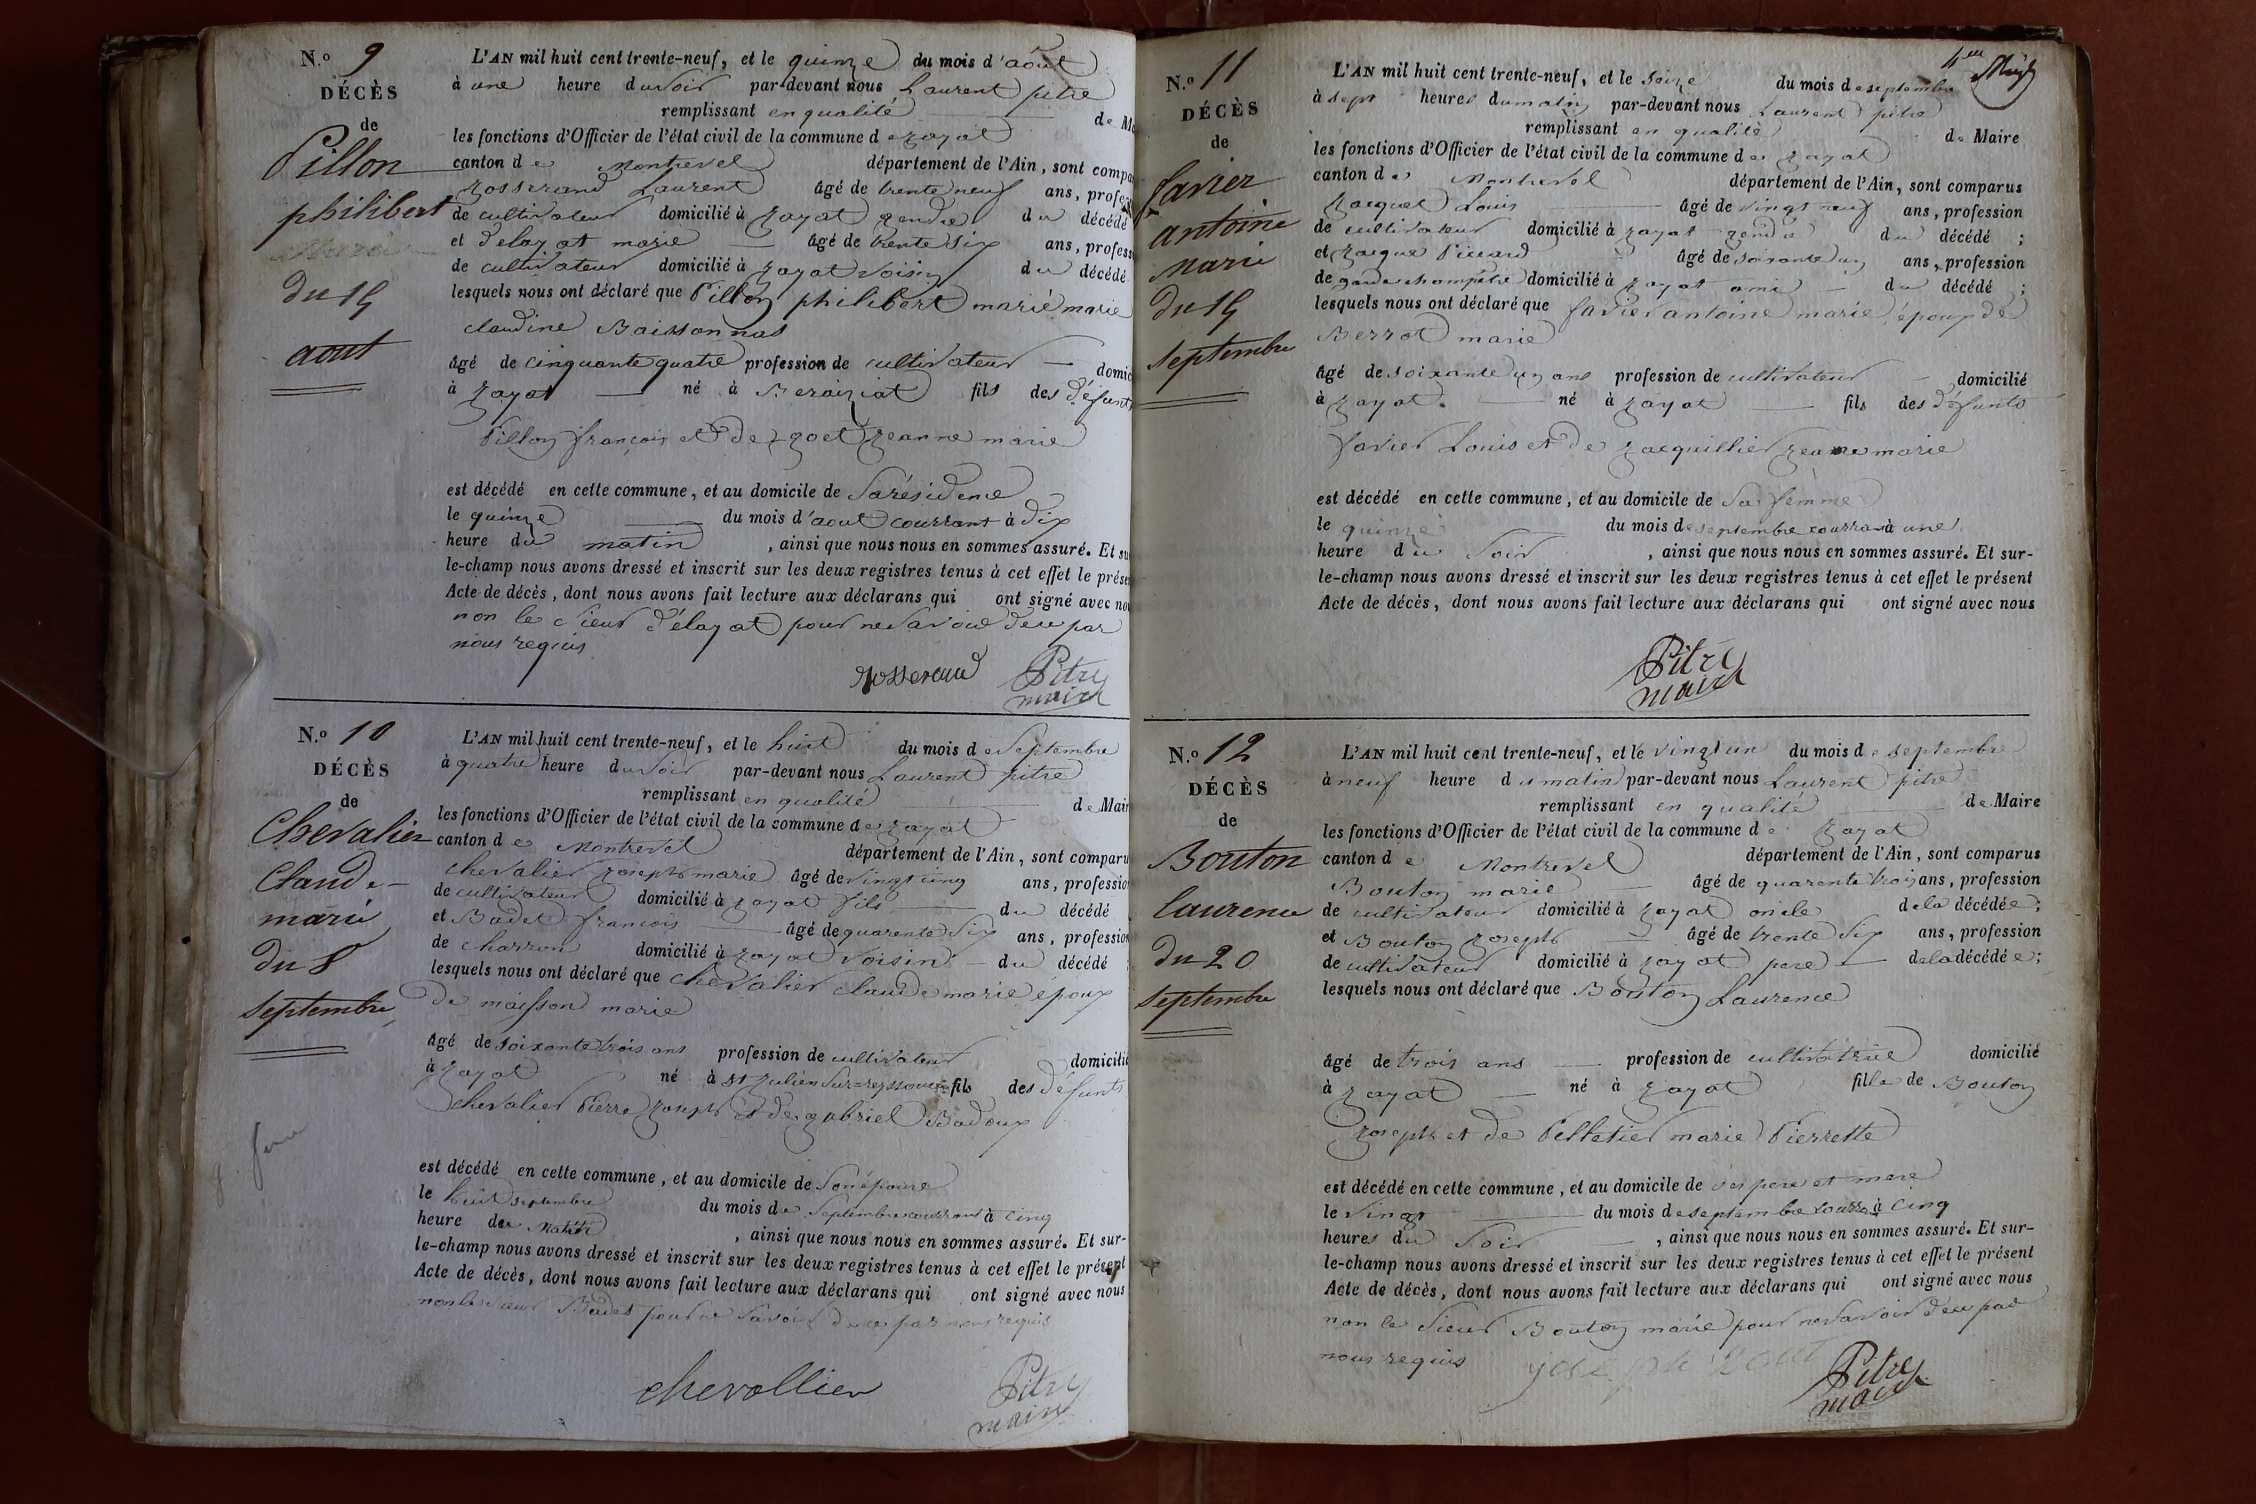 N.º 9
DÉCÈS
de
Pillon
philibert
du 15
aout
L'AN mil huit cent trente-neuf, et le quinze du mois d'août
à une heure du soir par-devant nous Laurent pitre
remplissant en qualité de Ma
les fonctions d'Officier de l'état civil de la commune de jayat
canton de Montrevel département de l'Ain, sont compa
Josserand Laurent âgé de trente neuf ans, profes
de cultivateur domicilié à jayat gendre du décédé
et delayat marie âgé de trente six ans, profess
de cultivateur domicilié à jayat voisin du décédé
lesquels nous ont déclaré que Pillon philibert marié marie
claudine Boissonnas
âgé de cinquante quatre profession de cultivateur domic
à jayat né à Beraiziat fils des défunt
Pillon françois et de jeanne marie
est décédé en cette commune, et au domicile de sa résidence
le quinze du mois d'aout courrant à dix
heure du matin, ainsi que nous nous en sommes assuré. Et su
le-champ nous avons dressé et inscrit sur les deux registres tenus à cet effet le prése
Acte de décès, dont nous avons fait lecture aux déclarans qui ont signé avec nou
non le sieur délayat pour ne savoir de ce par
nous requis
Josserand Pitre
maire
N.º 10
DÉCÈS
de
Chevalier
Claude
marie
du 8
septembre
L'AN mil huit cent trente-neuf, et le huit du mois de septembre
à quatre heure du soir par-devant nous Laurent pitre
remplissant en qualité de Mair
les fonctions d'Officier de l'état civil de la commune de jayat
canton de Montrevel département de l'Ain, sont comparu
chevalier joseph marie âgé de vingt cinq ans, profession
de cultivateur domicilié à jayat fils du décédé
et Badet françois âgé de quarente six ans, profession
de charron domicilié à jayat voisin du décédé
lesquels nous ont déclaré que chevalier claude marie epoux
de maisson marie
âgé de soixante trois ans profession de cultivateur domicilié
à jayat né à st julien sur reyssouze fils des défunts
chevalier Pierre joseph et de gabriel Badoux
est décédé en cette commune, et au domicile de son épouse
le huit septembre du mois de septembre courrant à cinq
heure du matin, ainsi que nous nous en sommes assuré. Et sur-
le-champ nous avons dressé et inscrit sur les deux registres tenus à cet effet le présent
Acte de décès, dont nous avons fait lecture aux déclarans qui ont signé avec nous
non le sieur Badet pour ne savoir de ce par nous requis
chevallier Pitre
maire
4me
N.º 11
DÉCÈS
de
favier
antoine
marie
du 15
septembre
L'AN mil huit cent trente-neuf, et le seize du mois de septembre
à sept heures du matin par-devant nous Laurent pitre
remplissant en qualité de Maire
les fonctions d'Officier de l'état civil de la commune de jayat
canton de Montrevel département de l'Ain, sont comparus
jacquet Louis âgé de vingt neuf ans, profession
de cultivateur domicilié à jayat gendre du décédé;
et jacque Piccard âgé de soixante un ans, profession
de garde champêtre domicilié à jayat ami du décédé;
lesquels nous ont déclaré que favier antoine marie époux de
Berrot marie
âgé de soixante un ans profession de cultivateur domicilié
à jayat né à jayat fils des défunts
favier Louis et de jacquillier jeanne marie
est décédé en cette commune, et au domicile de sa femme
le quinze du mois de septembre courran à une
heure du soir, ainsi que nous nous en sommes assuré. Et sur-
le-champ nous avons dressé et inscrit sur les deux registres tenus à cet effet le présent
Acte de décès, dont nous avons fait lecture aux déclarans qui ont signé avec nous
Pitre
maire
N.º 12
DÉCÈS
de
Bouton
laurence
du 20
septembre
L'AN mil huit cent trente-neuf, et le vingt un du mois de septembre
à neuf heure du matin par-devant nous Laurent pitre
remplissant en qualité de Maire
les fonctions d'Officier de l'état civil de la commune de jayat
canton de Montrevel département de l'Ain, sont comparus
Bouton marie âgé de quarente trois ans, profession
de cultivateur domicilié à jayat oncle de la décédée;
et Bouton joseph âgé de trente six ans, profession
de cultivateur domicilié à jayat pere de la décédée;
lesquels nous ont déclaré que Bouton Laurence
âgé de trois ans profession de cultivatrice domicilié
à jayat né à jayat fille de Bouton
joseph et de Pelletier marie Pierrette
est décédé en cette commune, et au domicile de ses pere et mere
le vingt du mois de septembre courra à cinq
heures du soir, ainsi que nous nous en sommes assuré. Et sur-
le-champ nous avons dressé et inscrit sur les deux registres tenus à cet effet le présent
Acte de décès, dont nous avons fait lecture aux déclarans qui ont signé avec nous
non le sieur Bouton marie pour ne savoir de ce par
nous requis
Pitre
maire